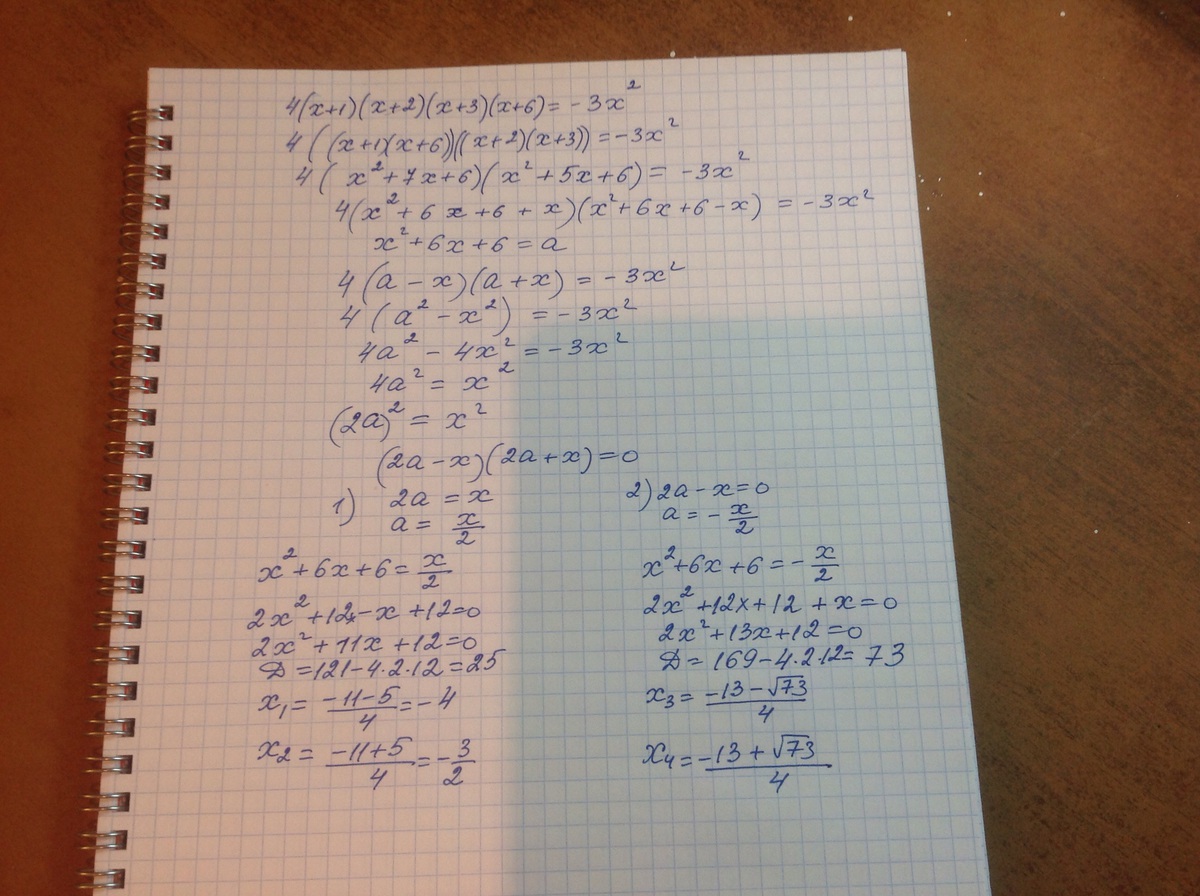 4(x+1)(x+2)(x+3)(x+6)= -3x²
4((x+1)(x+6))((x+2)(x+3)) =-3x²
4( x²+7x+6)(x²+5x+6)= -3x²
4(x²+6x+6+x)(x²+6x+6-x) = -3x²
x²+6x+6=a
4(a-x)(a+x) = -3x²
4(a²-x²) =-3x²
4a²-4x²=-3x²
4a²= x²
(2a)²= x²
(2a-x)(2a+x)=0
1) 2a=x
a= x/2
x²+6x+6= x/2
2x²+12x-x+12=0
2x²+11x+12=0
D=121-4·2·12=25
x₁= (-11-5)/4=-4
x₂= (-11+5)/4=-3/2
2) 2a-x=0
a=-x/2
x²+6x+6=-x/2
2x²+12x+12+x=0
2x²+13x+12=0
D=169-4·2·12=73
x₃= (-13-√73)/4
x₄= (-13+√73)/4